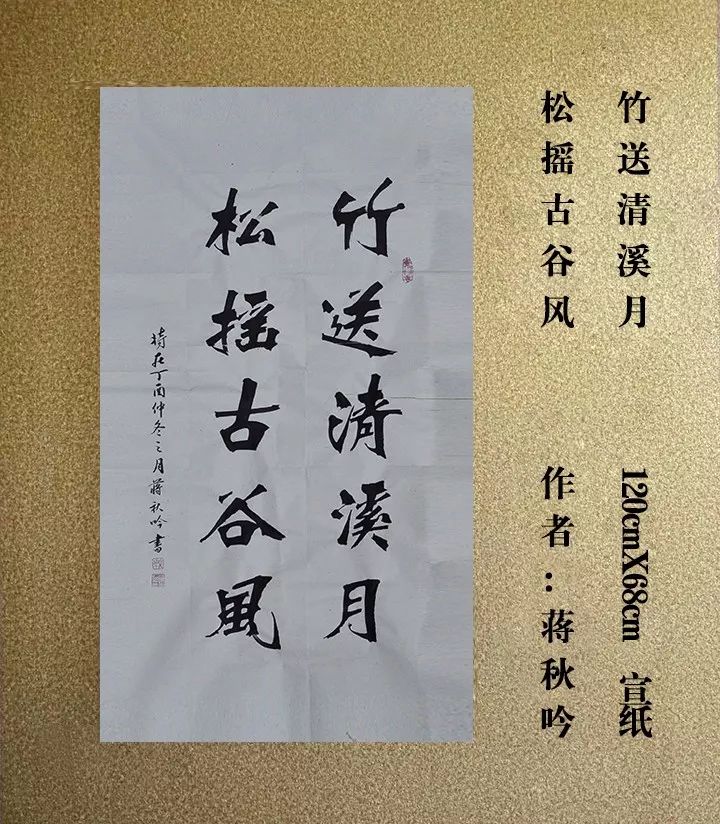 竹送清溪月
120cmX68cm 宣纸
松摇古谷风
作者：蒋秋吟
竹送清溪月
松搖古谷風
時在丁酉仲冬之月蔣秋吟書